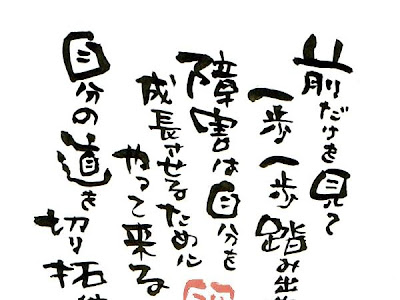 前だけを見て
一歩一歩踏み出
障害は自分を
成長させるために
やって来る
自分の道を
切り拓